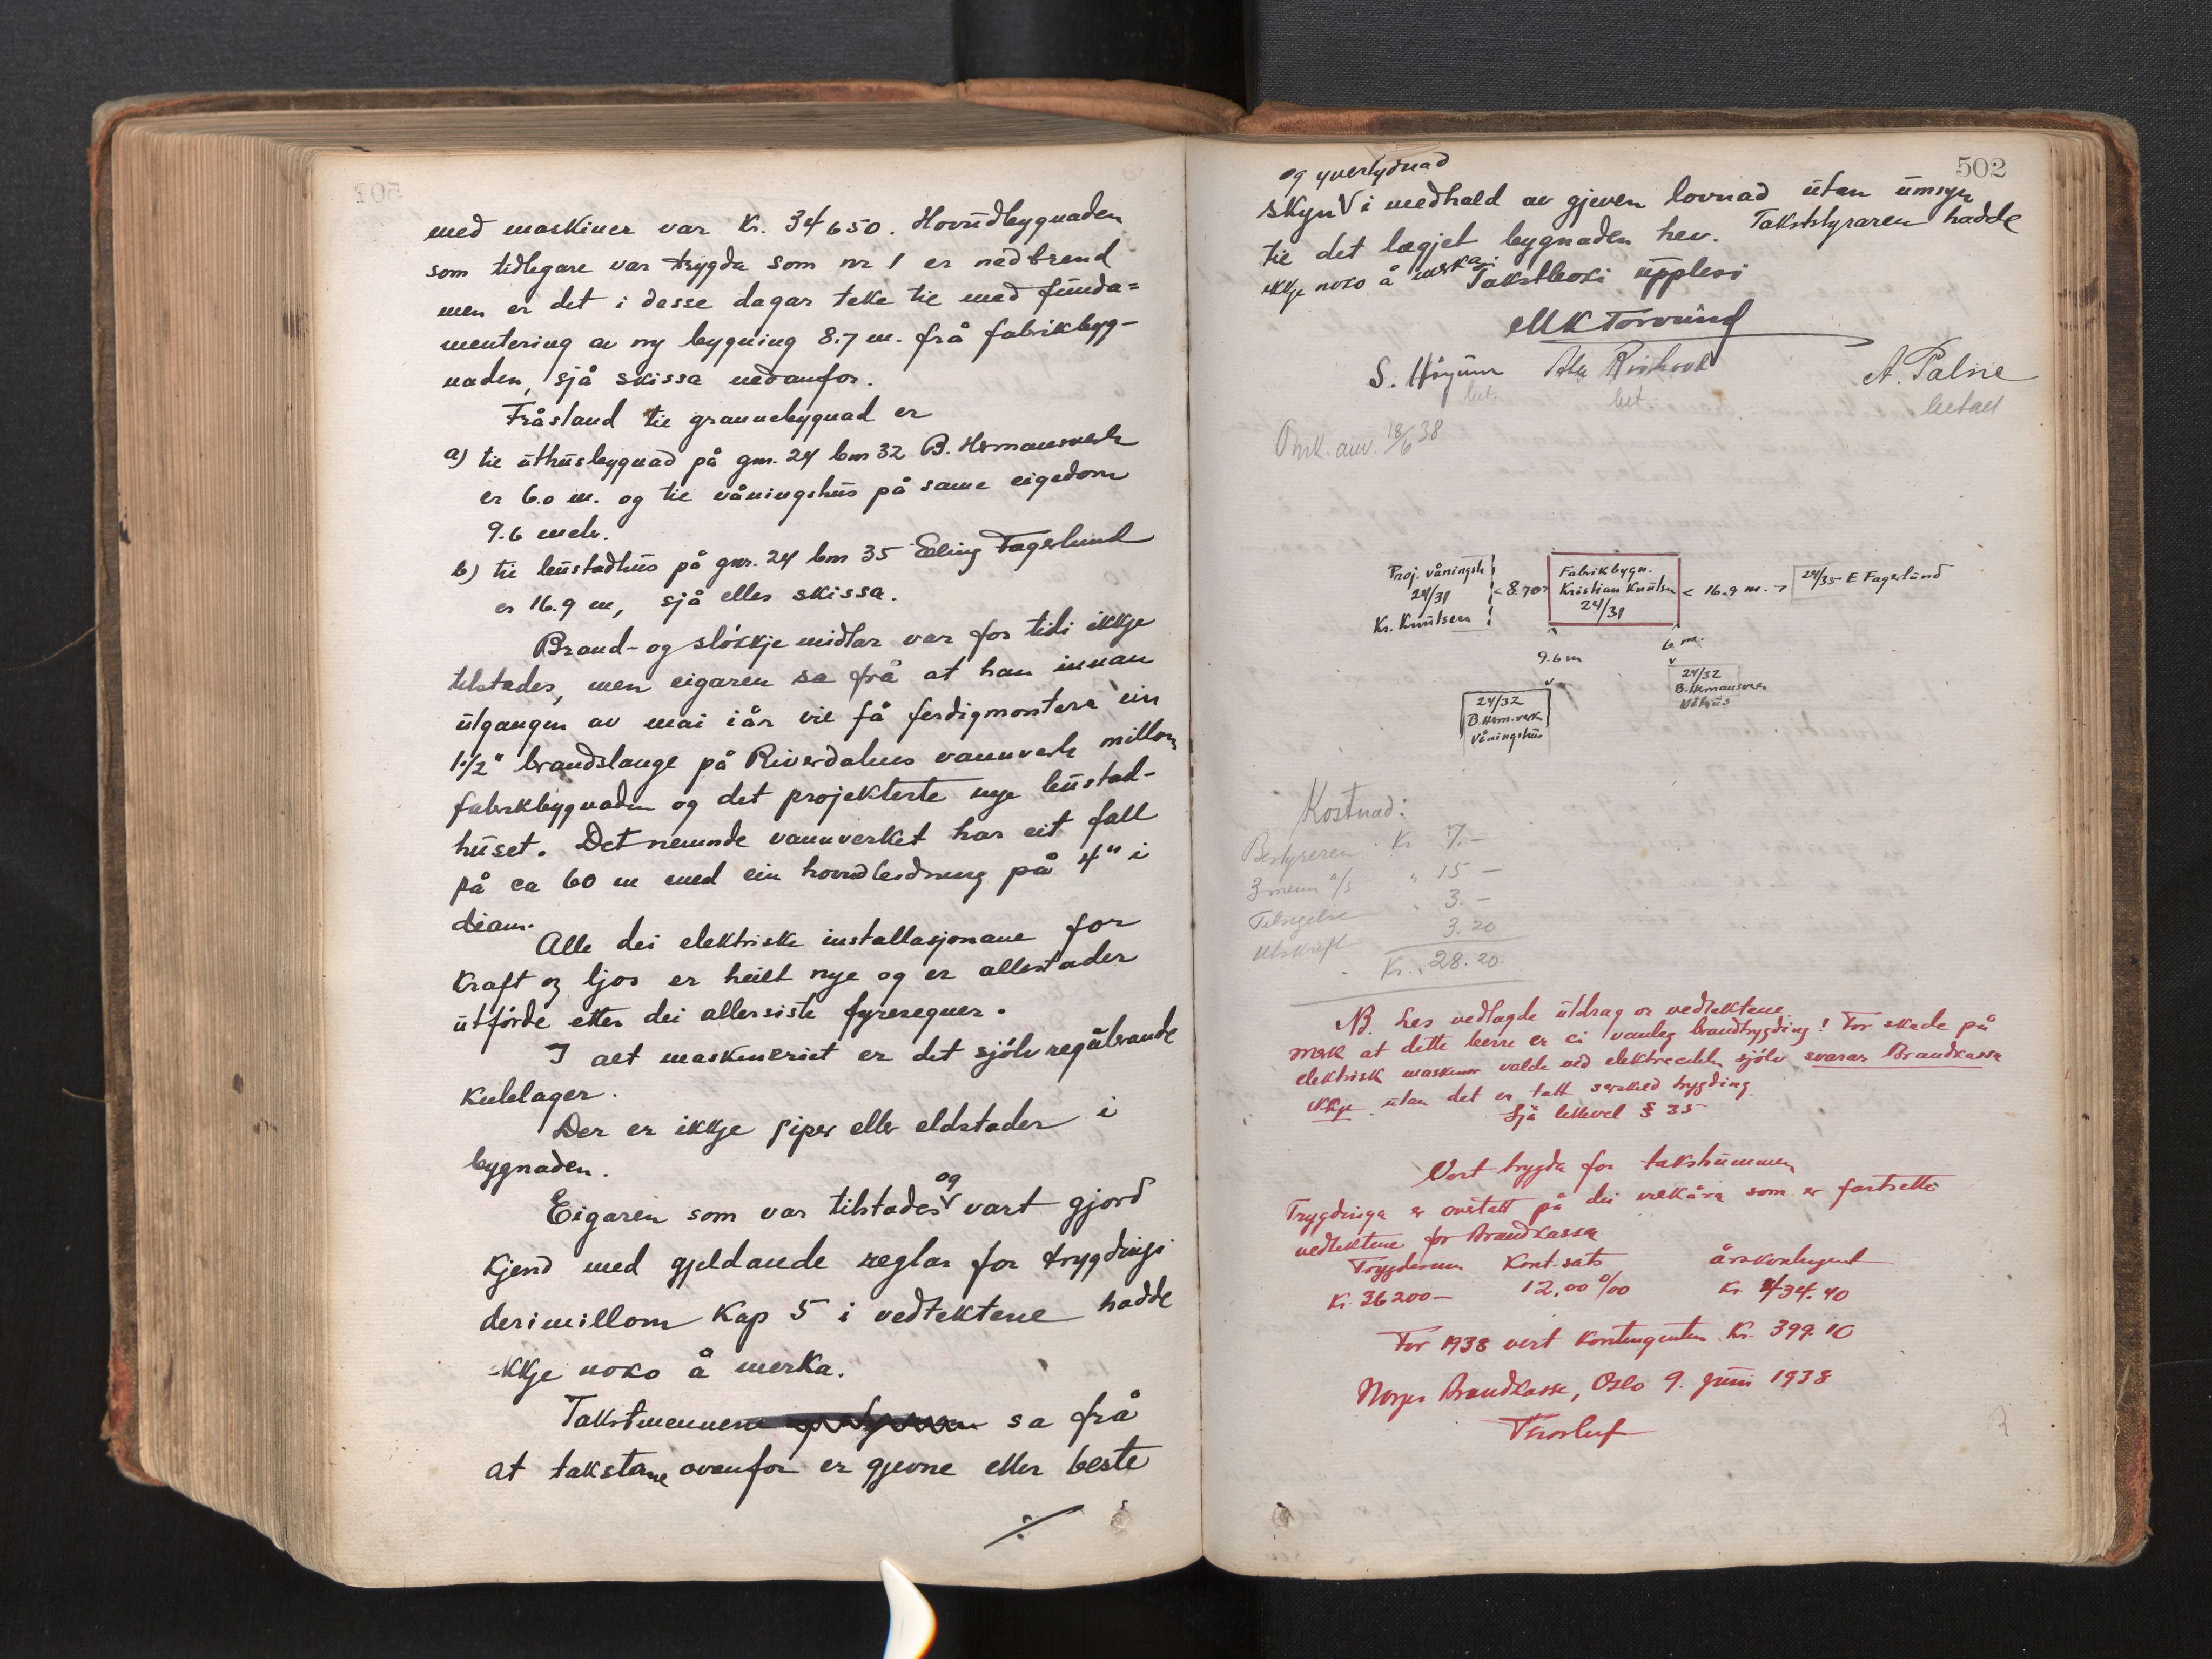 med maskiner var Kr. 34650. Hovudbygnaden
som tidlegare var trygda som nr 1 er nedbrend
men er det i desse dagar teke til med funda=
mentering av ny bygning 8.7 m. frå fabrikbyg-
naden, sjå skissa nedanfor.
Fråstand til grannebygnad er
a) til uthusbygnad på gnr. 24 bnr 32 B. Hermansverk
er 6.0 m. og til våningshus på same eigedom
9.6 meter.
b) til bustadhus på gnr. 24 bnr 35 Erling Fagerlund
er 16.9 m, sjå elles skissa.
Brand- og sløkkjemidlar var for tidi ikkje
tilstades, men eigaren sa frå at han innan
utgangen av mai iår vil få ferdigmontera ein
1 1/2" brandslange på Riverdalens vannverk millom
fabrikbygnaden og det projekterte nye bustad-
huset. Det nemnde vannverket har eit fall
på ca 60 m med ein hovudledning på 4" i
diam.
Alle dei elektriske installasjonane for
kraft og ljos er heilt nye og er allestader
utførde etter dei allersiste fyreseguer.
I alt maskineriet er det sjølvregulerande
kulelager.
Der er ikkje piper eller eldstader i
bygnaden.
og
Eigaren som var tilstades V vart gjord
kjend med gjeldande reglar for trygdingi
derimillom Kap 5 i vedtektene hadde
ikkje noko å merka.
Takstmennene sa frå
at takstane ovanfor er gjevne etter beste
./.
502
og yvertydnad
skyn V i medhald av gjeven lovnad utan umsyn
til det lægjet bygnaden hev. Takststyraren hadde
ikkje noko å merka. Takstboki upplesi
MK Torvund
S. Håjum A. Palne
bet. bet. betalt
18/6 38
Proj. våningsh
24/31
Kr. Knutsen
< 8.70 >
Fabrikbygn.
Kristian Knutsen
24/31
< 16.9 m. >
24/35 E Fagerlund
9.6 m
6 m.
24/32
B. Herm.verk
Våningshus
24/32
B. Hermansverk
Uthus
Kostnad:
Bestyreren Kr 7.-
3 menn a/5 " 15 -
Tilsigelse " 3.-
Utskrift 3.20
Kr. 28.20.
NB. Les vedlagde utdrag or vedtektene.
Merk at dette berre er ei vanleg brandtrygding! For skade på
elektrisk maskiner valda ved elektreciteten sjølv svarar Brandkassa
ikkje utan det er tatt serskild trygding
Sjå likevel § 35
Vert trygda for takstsummen
Trygdinga er overtatt på dei vilkåra som er fastsette i
vedtektene for Brandkassa
Trygdesum Kont.sats årskontingent
Kr. 36200- 12,00 0/00 Kr. 434.40
For 1938 vert kontingenten Kr. 399.10
Norges Brandkasse, Oslo 9. juni 1938